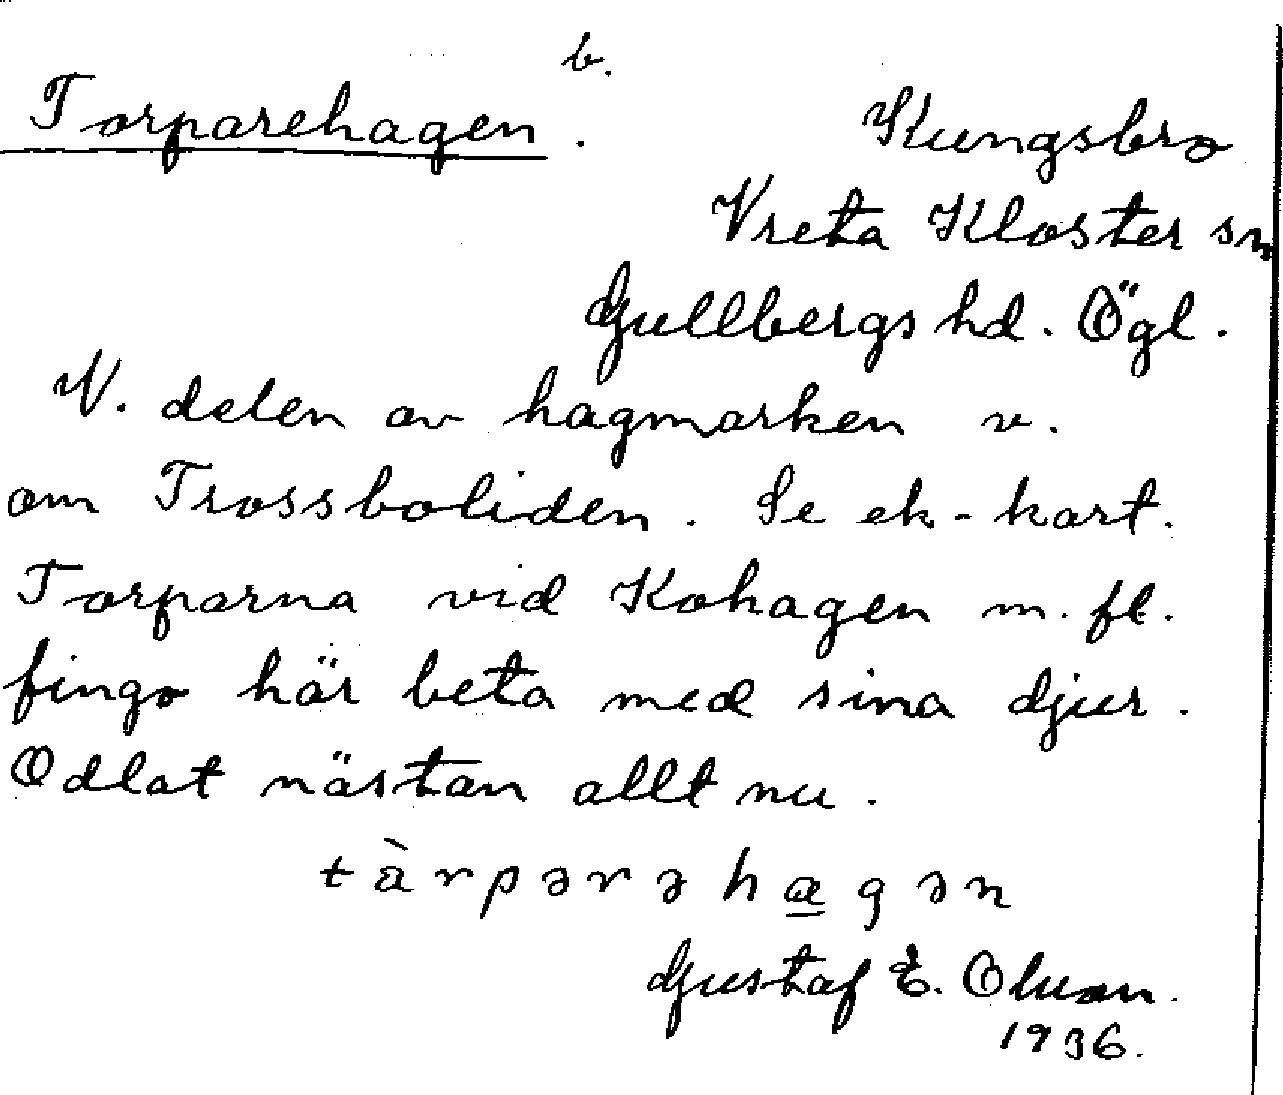 b.
Torparehagen.
Kungsbro
Vreta Kloster sn
Gullbergs hd. Ögl.
V. delen av hagmarken v.
om Trossboliden. Se ek-kart.
Torparna vid Kohagen m. fl.
fingo här beta med sina djur.
Odlat nästan allt nu.
tàrpərəha̲gən
Gustaf E.
1936.